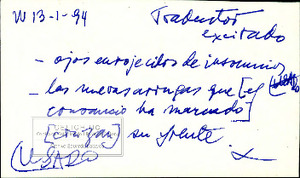 W 13-1-94
Traductor
excitado
- ojos enrojecidos de insomnio
- las nuevas arrugas que [el
cansancio ha marcado]
[cirujan] su frente
(USADO